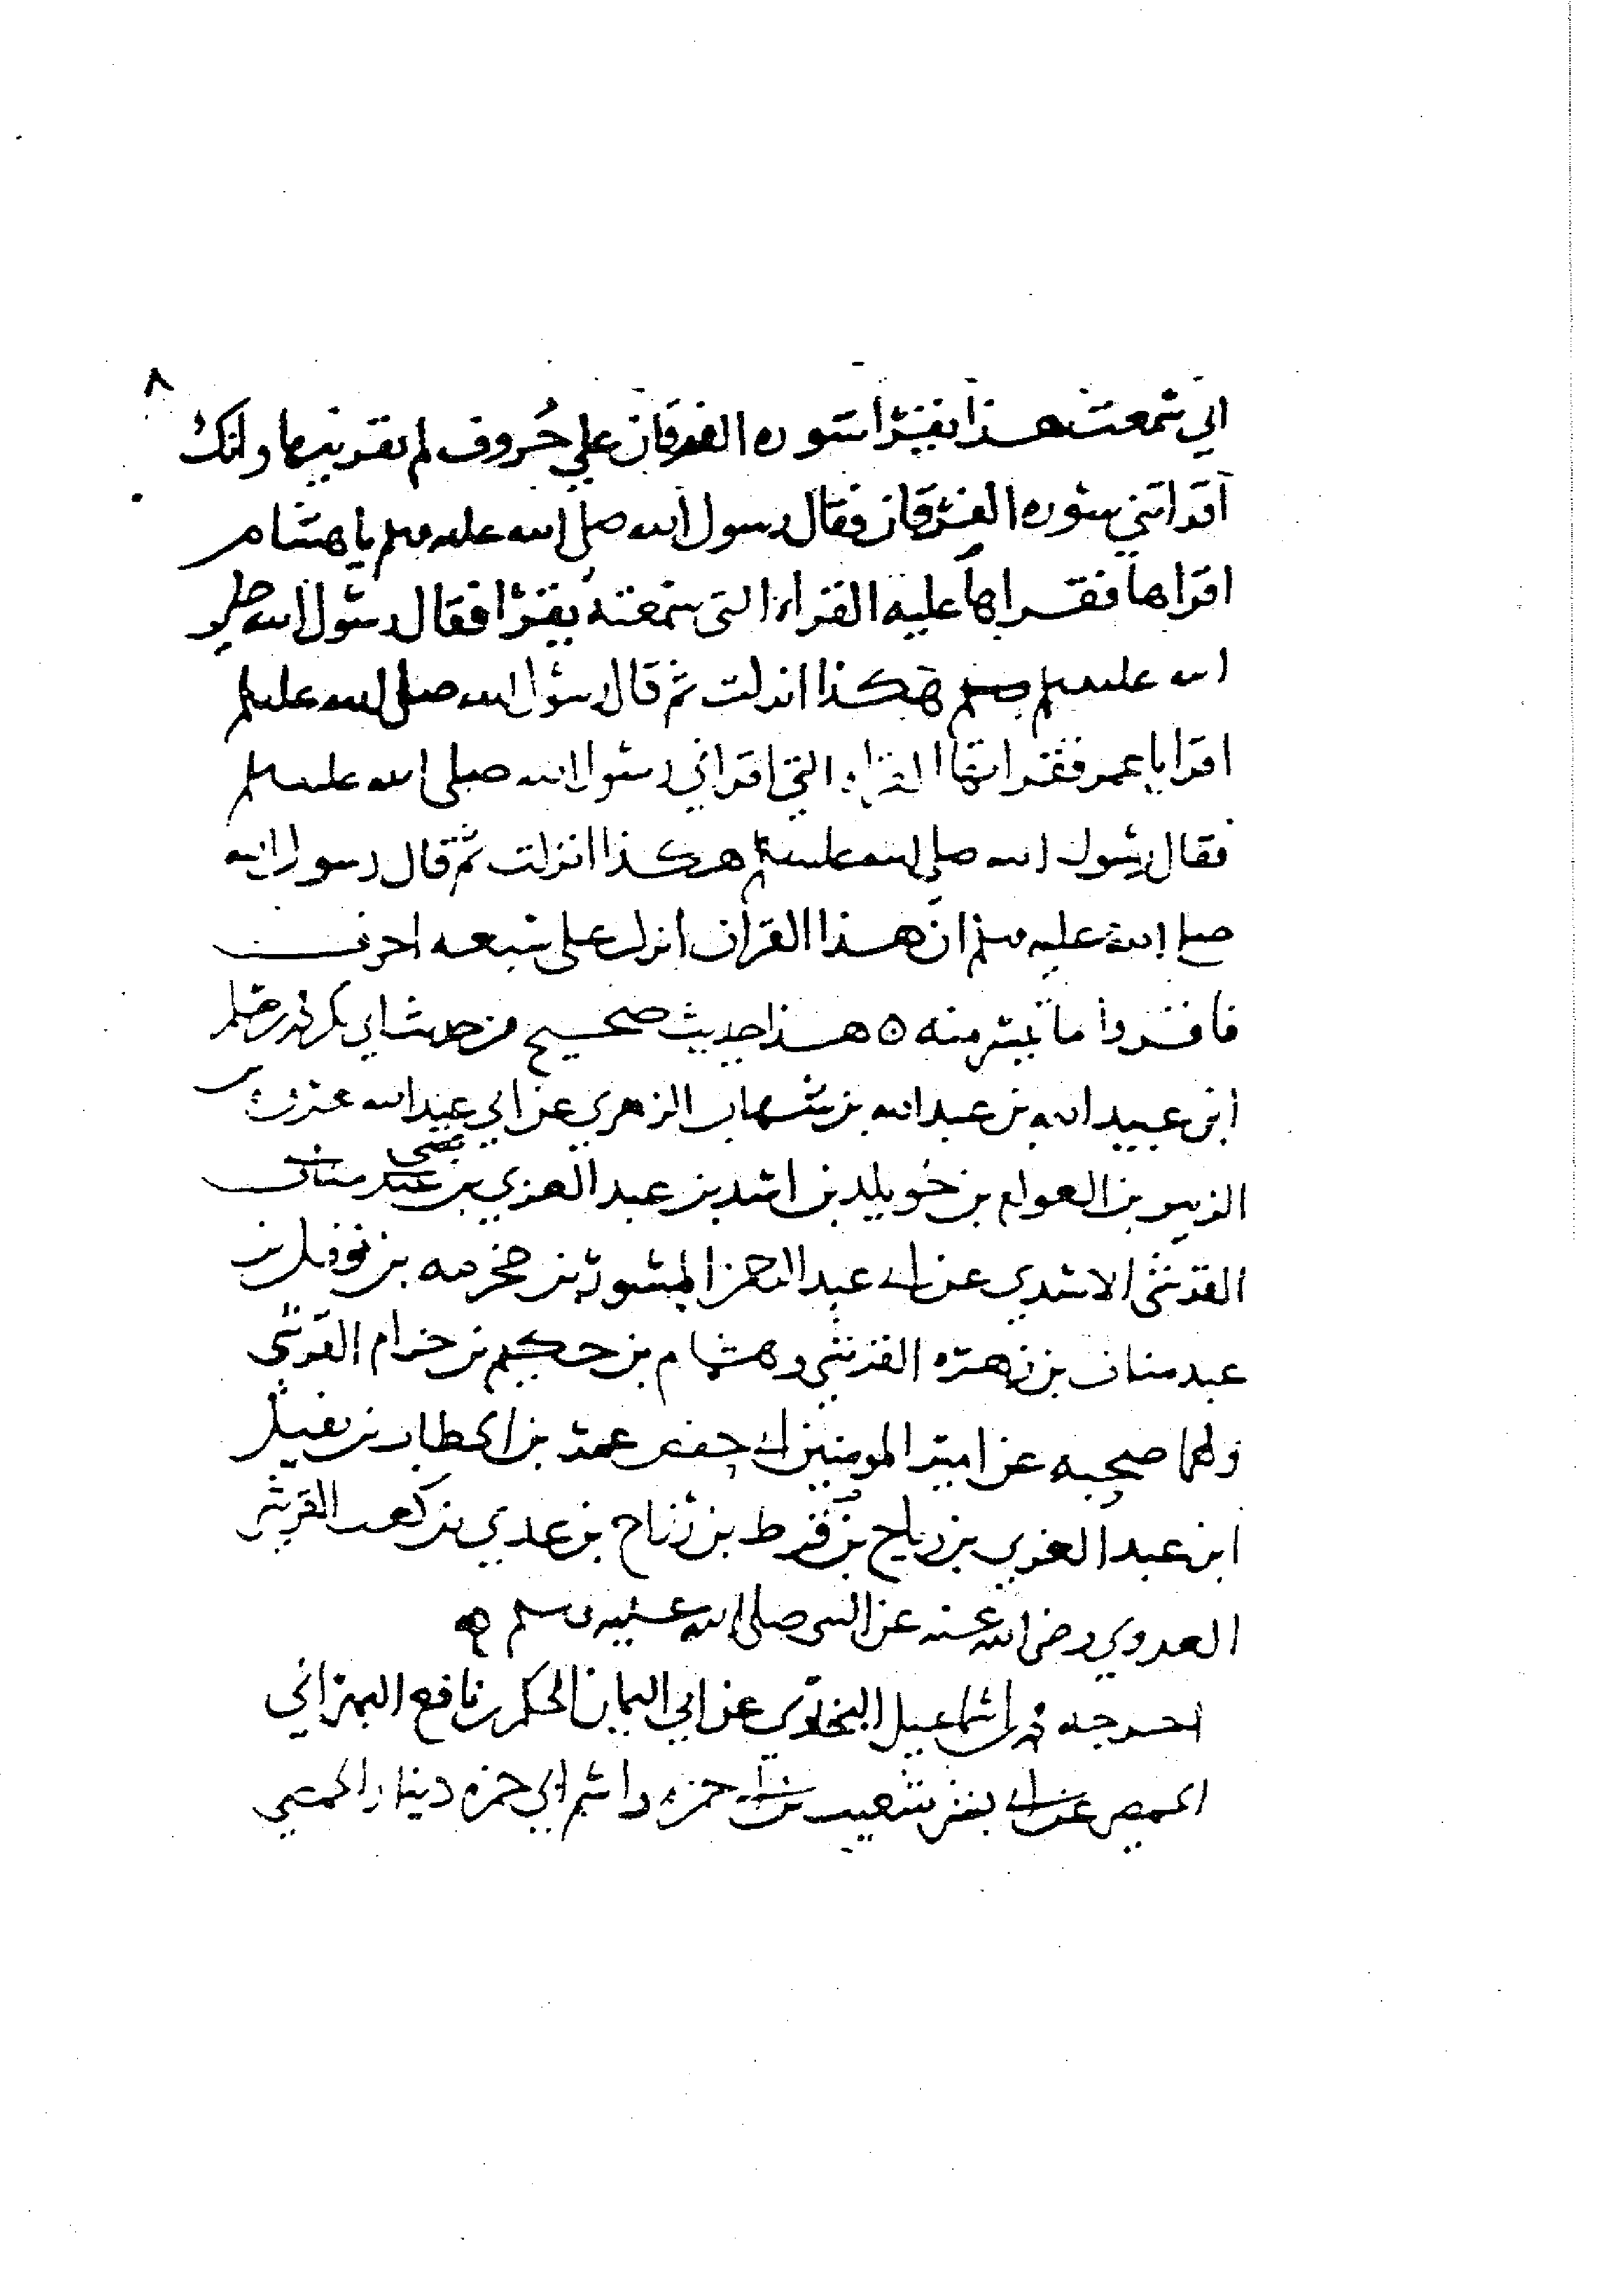 ٨
اني سمعت هذا يقرا سوره الفرقان على حُروف لم تقرينها وانك
اقراتني سوره الفرقان فقال رسول الله صلى الله عليه وسلم يا هشام
اقراها فقراها عليه القراءة التي سمعته يقرا فقال رسول الله صلى
الله عليه وسلم هكذا انزلت ثم قال رسول الله صلى الله عليه وسلم
اقرا يا عمر فقراتها القراءة التي اقراني رسول الله صلى الله عليه وسلم
فقال رسول الله صلى الله عليه وسلم هكذا انزلت ثم قال رسول الله
صلى الله عليه وسلم ان هذا القران انزل على سبعه احرف
فاقروا ما تيسر منه ه هذا حديث صحيح من حديث ابي بكر محمد بن مسلم
ابن عبيد الله بن عبد الله بن شهاب الزهري عن ابي عبد الله عروة بن
الزبير بن العوام بن خويلد بن اسد بن عبد العزي بن قصي عبد مناف
القرشي الاسدي عن ابي عبد الرحمن المسور بن مخرمه بن نوفل بن
عبد مناف بن زهره القرشي وهشام بن حكيم بن حزام القرشي
ولهما صحبه عن امير المومنين ابي حفص عمر بن الخطاب بن نفيل
ابن عبد العزي بن رياح بن قرط بن رزاح بن عدي بن كعب القرشي
العدوي رضي الله عنه عن النبي صلى الله عليه وسلم ه
اخرجه محمد بن اسماعيل البخاري عن ابي اليمان الحكم بن نافع البهراني
الحمصي عن ابي بشر شعيب بن ابي حمزه واسم ابي حمزه دينار الحمصي